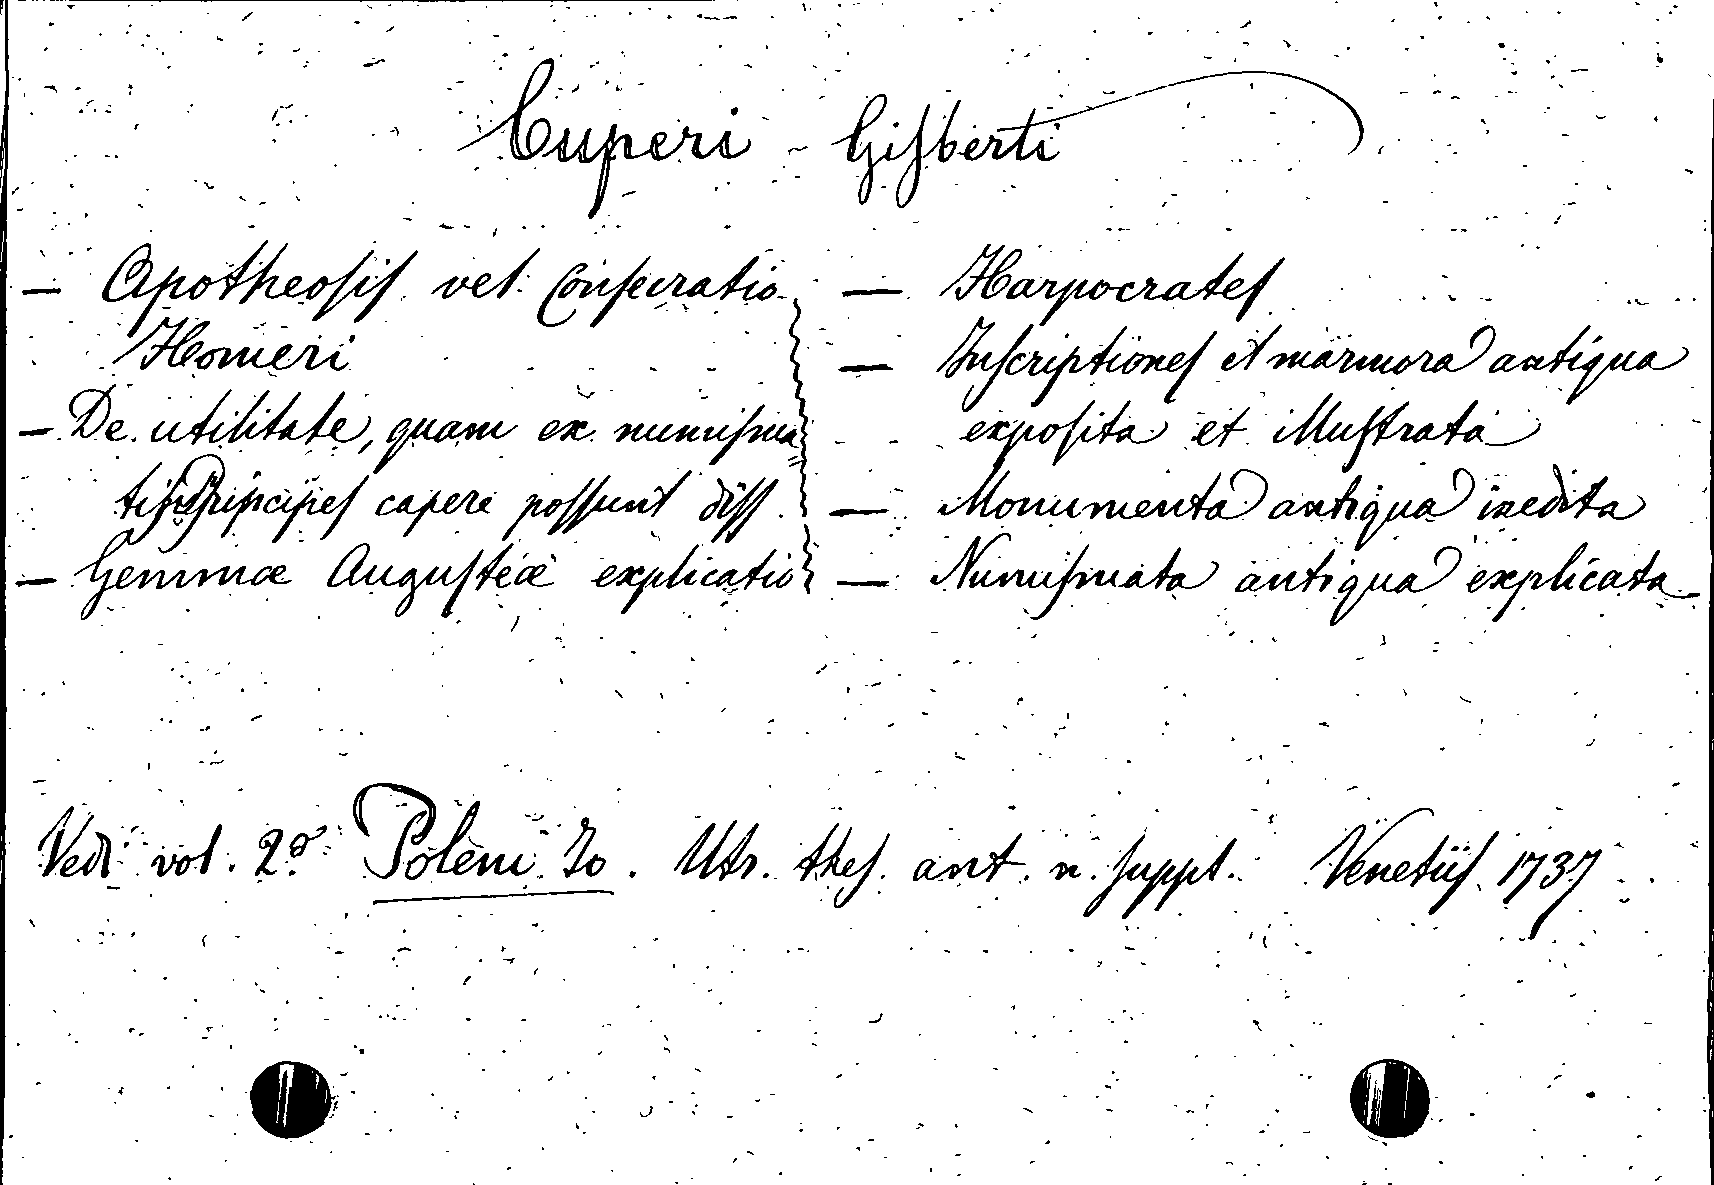 Cuperi - Gisberti
— Apotheosis vel Consecratio
Homeri
— De utilitate, quam ex numisma
tis Principes capere possunt diss.
— Gemmæ Augusteæ explicatio
— Harpocrates
— Inscriptiones et marmora antiqua
exposita et illustrata
— Monumenta antiqua inedita
— Numismata antiqua explicata
Vedi vol. 2º Poleni Io. Utr. thes. ant. n. suppl. Venetiis 1737